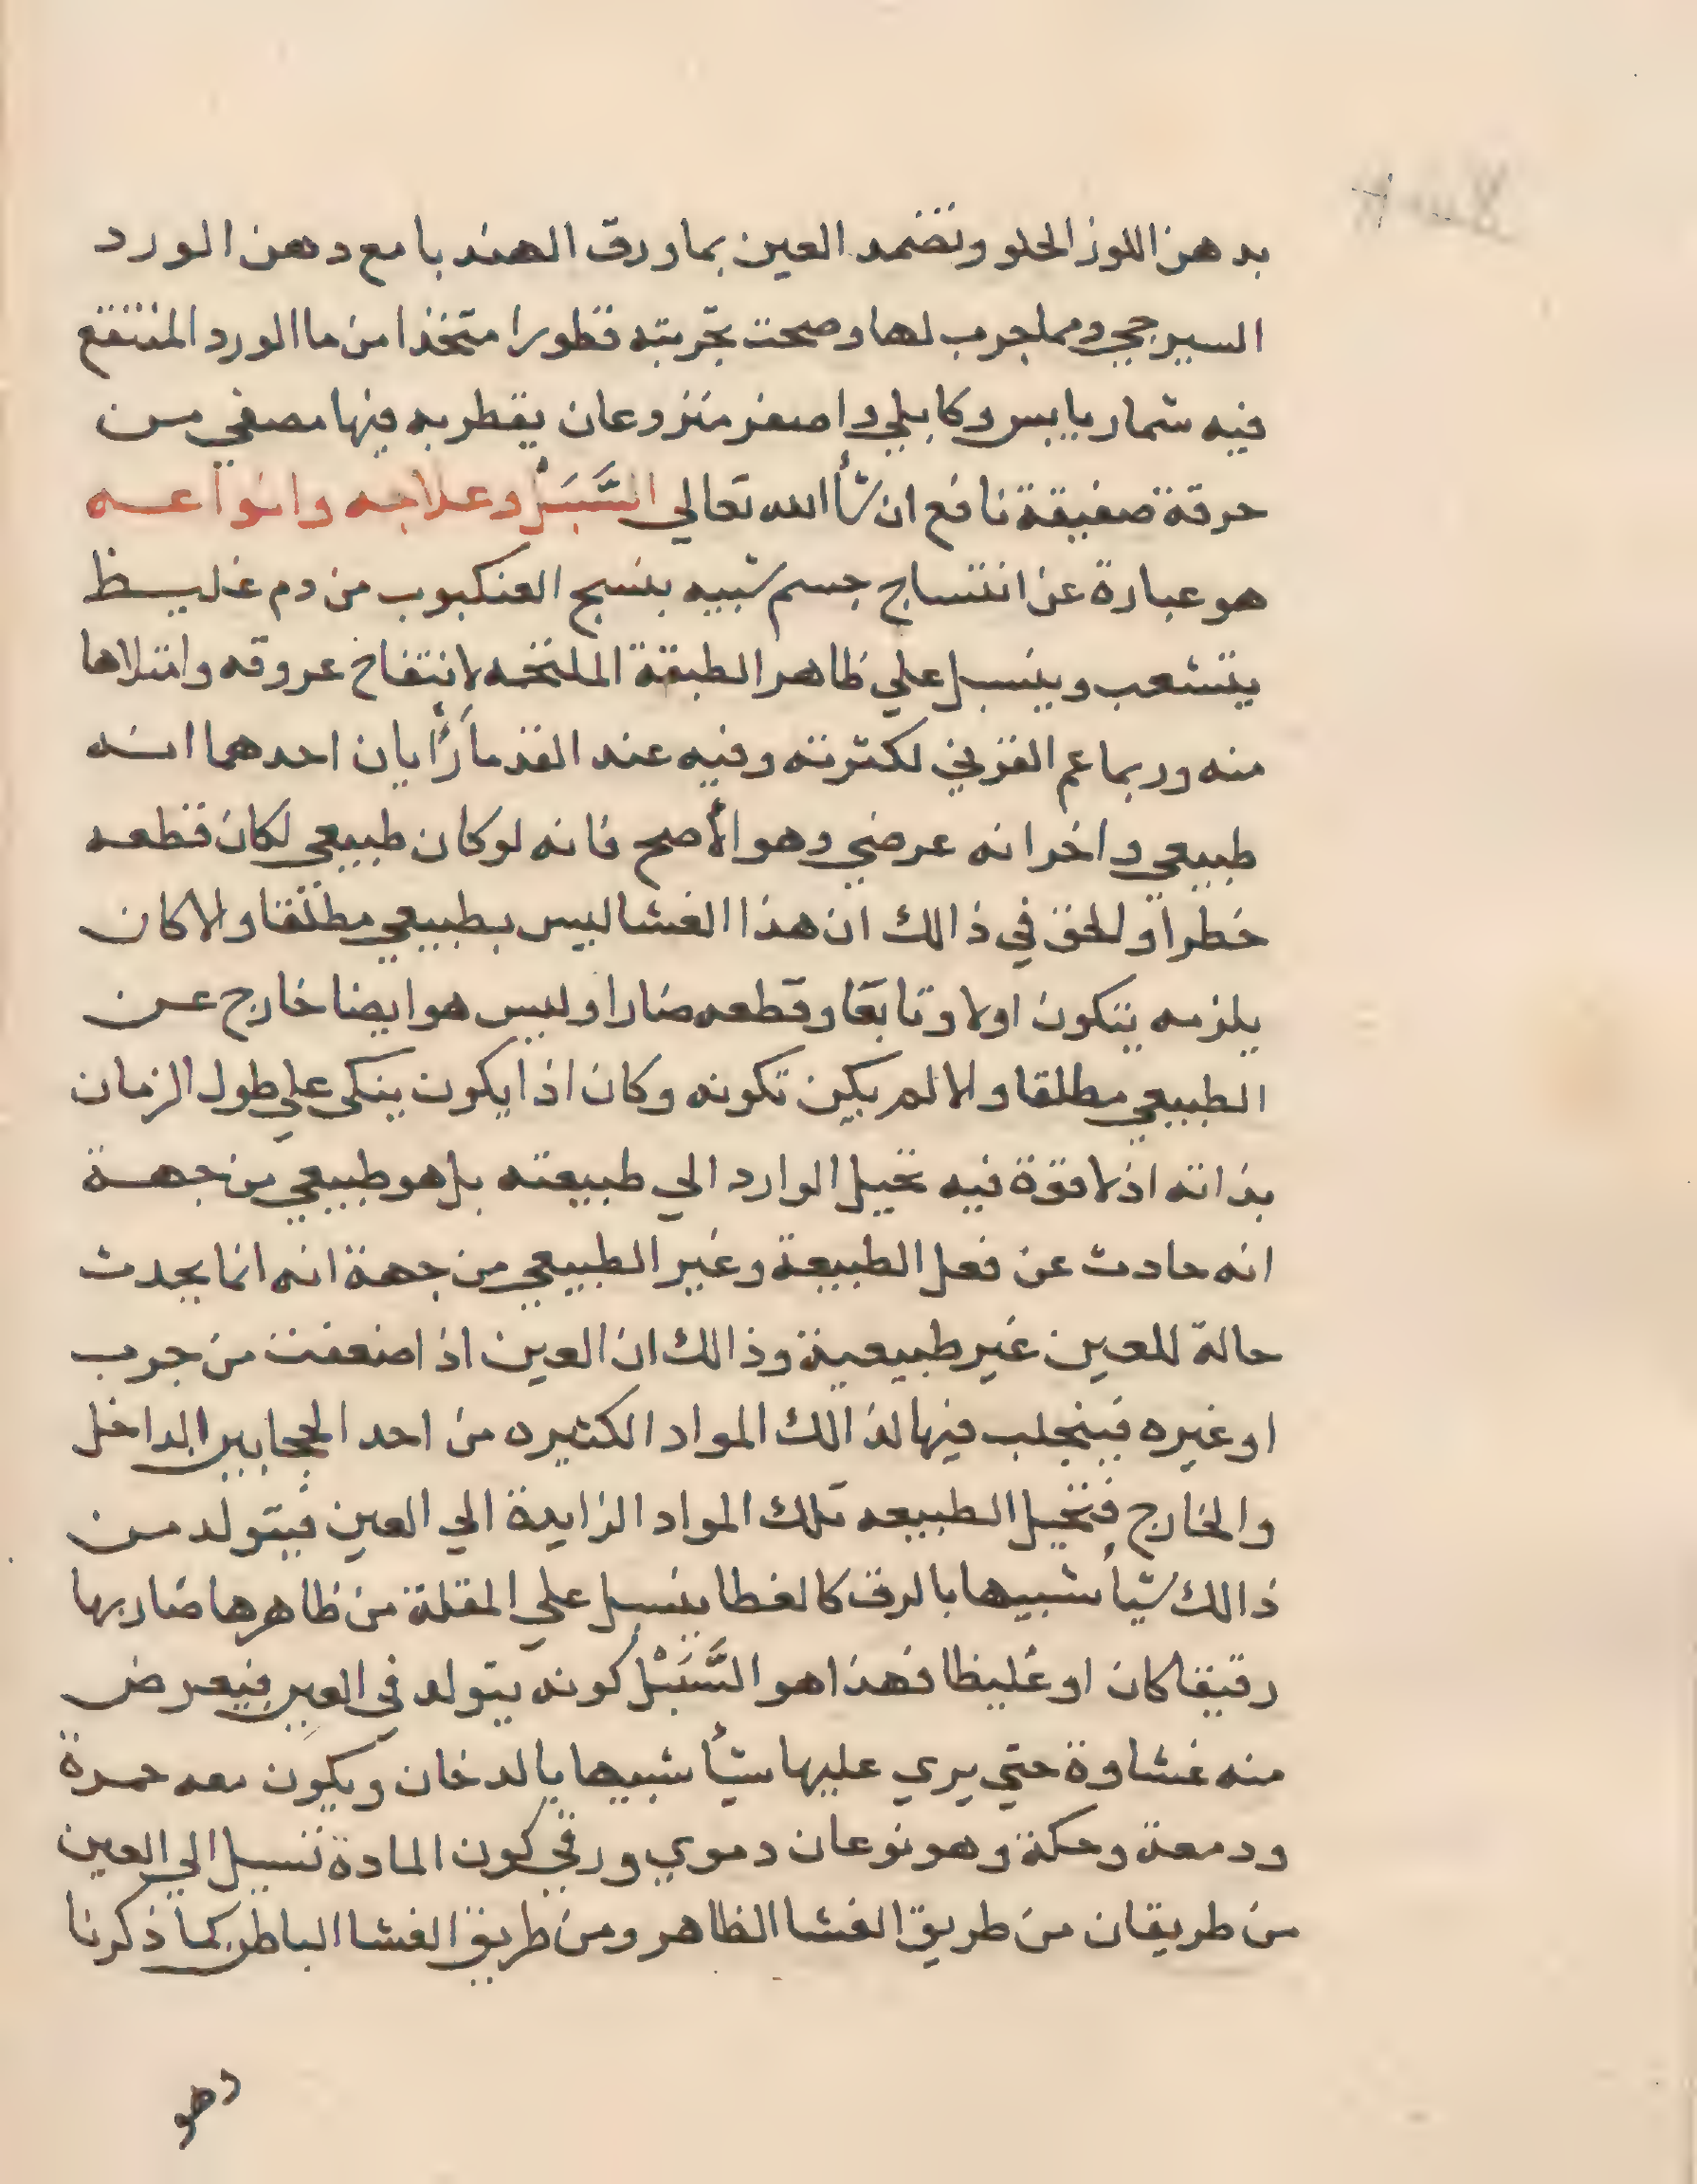 بدهن اللوز الحلو وتضمد العين بماورق الهندبا مع دهن الورد
السيرجي ومما جرب لها وصحت تجربته قطورا متخذا من ما الورد المنتقع
فيه شمار يابس وكابلي واصفر منزوعان يقطر به فيها مصفي من
حرقة صفيقة نافع ان شأ الله تعالي السَّبَلْ وعلاجه وانواعه
هو عبارة عن انتساج جسم شبيه بنسج العنكبوب من دم غليظ
يتشعب وينسبل علي ظاهر الطبقة الملتخمه لانتفاخ عروقه وامتلاها
منه وربما عم القرني لكثرته وفيه عند القدما رأيان احدهما انه
طبيعي واخر انه عرضي وهو الأصح فانه لو كان طبيعي لكان قطعه
خطرا والحق في ذالك ان هذا الغشا ليس بطبيعي مطلقا والا كان
يلزمه يتكون اولا وتابعا وقطعه ضارا وليس هو ايضا خارج عن
الطبيعي مطلقا والا لم يكن تكونه وكان اذا يكون ينكي علي طول الزمان
بذاته اذ لا قوة فيه تحيل الوارد الي طبيعته بل هو طبيعي من جهة
انه حادث عن فعل الطبيعة وغير الطبيعي من جهة انه انما يحدث
حالة للعين غير طبيعية وذالك ان العين اذا ضعفت من جرب
او غيره فينجلب فيها لذالك المواد الكثيره من احد الحجابين الداخل
والخارج فتحيل الطبيعه تلك المواد الزايدة الي العين فيتولد من
ذالك شيأ شبيها بالرق كالغطا ينسبل علي المقلة من ظاهرها ضاربها
رقيقا كان او غليظا فهذا هو السَّبَلْ كونه يتولد في العين فيعرض
منه غشاوة حتي يري عليها شيأ شبيها بالدخان ويكون معه حمرة
ودمعة وحكة وهو نوعان دموي ورقي كون المادة تسيل الي العين
من طريقان من طريق الغشا الظاهر ومن طريق الغشا الباطن كما ذكرنا
وهو